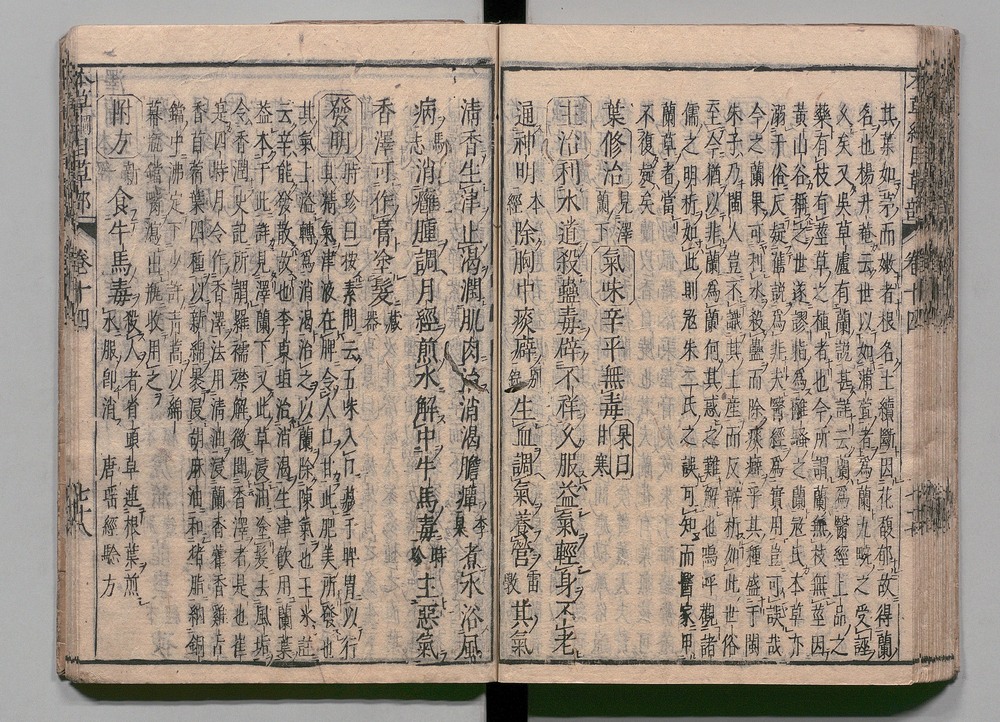 其葉如茅而嫩者根名土續斷因花馥郁故得蘭
名也楊升菴云世以如蒲萱者為蘭九畹之受誣
久矣又吳草廬有蘭說甚詳云蘭為醫經上品之
藥有枝有莖草之植者也今所謂蘭無枝無莖因
黃山谷稱之世遂謬指為離騷之蘭寇氏本草亦
溺于俗反疑舊說為非夫醫經為實用豈可誤哉
今之蘭果可利水殺蠱而除痰癖乎其種盛于閩
朱子乃閩人豈不識其土產而反辯析如此世俗
至今猶以非蘭為蘭何其惑之難解也嗚呼觀諸
儒之明析如此則寇朱二氏之誤可知而醫家用
蘭草者當
不復疑矣
葉修治見澤蘭下氣味辛平無毒杲曰甘寒
主治利水道殺蠱毒辟不祥久服益氣輕身不老
通神明本經除胸中痰癖別錄生血調氣養營雷斅其氣
清香生津止渴潤肌肉治消渴膽癉李杲煮水浴風
病馬志消癰腫調月經煎水解中牛馬毒時珍主惡氣
香澤可作膏塗髮藏器
發明時珍曰按素問云五味入口藏于脾胃以行
其精氣津液在脾令人口甘此肥美所發也
其氣上溢轉為消渴治之以蘭除陳氣也王氷註
云辛能發散故也李東垣治消渴生津飲用蘭葉
益本于此詳見澤蘭下又此草浸油塗髮去風垢
令香潤史記所謂羅襦襟解微聞香澤者是也崔
寔四時月令作香澤法用清油浸蘭香藿香雞舌
香苜蓿葉四種以新綿裹浸胡麻油和猪脂納銅
鐺中沸定下少許青蒿以綿
幕瓶鐺嘴瀉出瓶收用之
附方新食牛馬毒殺人者省頭草連根葉煎水服即消唐瑤經驗方
本草綱目草部 卷十四 七十八